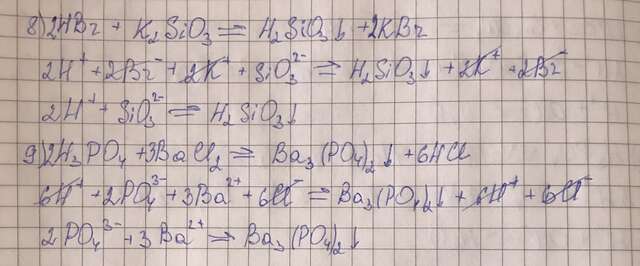 8) 2HBr + K₂SiO₃ ⇌ H₂SiO₃↓ + 2KBr
2H⁺ + 2Br⁻ + 2K⁺ + SiO₃²⁻ ⇌ H₂SiO₃↓ + 2K⁺ + 2Br⁻
2H⁺ + SiO₃²⁻ ⇌ H₂SiO₃↓
9) 2H₃PO₄ + 3BaCl₂ ⇌ Ba₃(PO₄)₂↓ + 6HCl
6H⁺ + 2PO₄³⁻ + 3Ba²⁺ + 6Cl⁻ ⇌ Ba₃(PO₄)₂↓ + 6H⁺ + 6Cl⁻
2PO₄³⁻ + 3Ba²⁺ ⇌ Ba₃(PO₄)₂↓